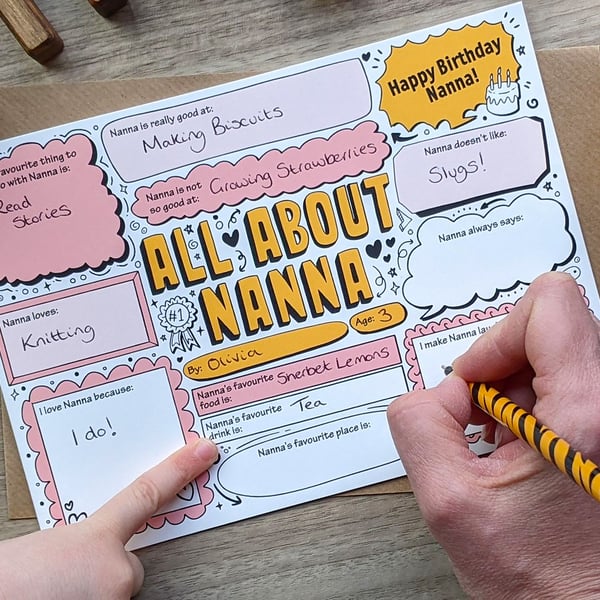 Happy Birthday
Nanna!
Nanna is really good at:
Making Biscuits
Nanna is not
so good at: Growing Strawberries
Nanna doesn't like:
Slugs!
avourite thing to
o with Nanna is:
Read
Stories
ALL ABOUT
NANNA
#1
Nanna always says:
Nanna loves:
Knitting
By: Olivia
Age: 3
I make Nanna lau
Nanna's favourite
food is: Sherbet Lemons
Nanna's favourite
drink is: Tea
Nanna's favourite place is:
I love Nanna because:
I do!